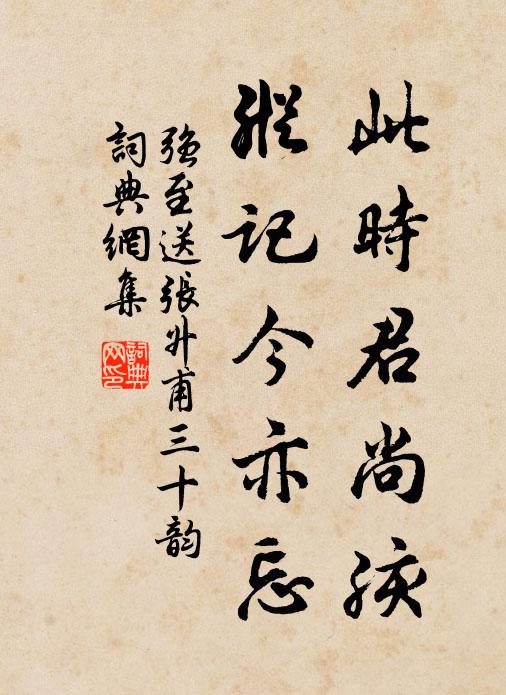 此時君尚孩
縱記今亦忘
強至送張升甫三十韵
詞典網集
詞典網印